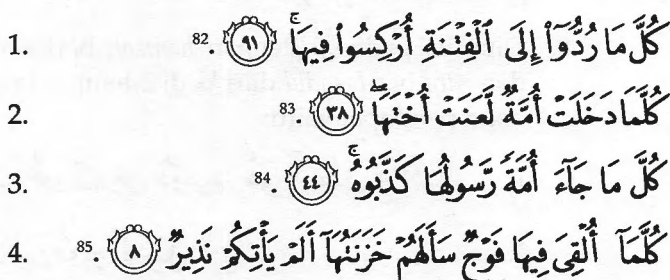 1. كُلَّ مَا رُدُّوٓا۟ إِلَى ٱلْفِتْنَةِ أُرْكِسُوا۟ فِيهَا ۚ ﴿٩١﴾ 82
2. كُلَّمَا دَخَلَتْ أُمَّةٌ لَّعَنَتْ أُخْتَهَا ۖ ﴿٣٨﴾ .83
3. كُلَّ مَا جَآءَ أُمَّةً رَّسُولُهَا كَذَّبُوهُ ۚ ﴿٤٤﴾ .84
4. كُلَّمَآ أُلْقِىَ فِيهَا فَوْجٌ سَأَلَهُمْ خَزَنَتُهَآ أَلَمْ يَأْتِكُمْ نَذِيرٌ ﴿٨﴾ .85